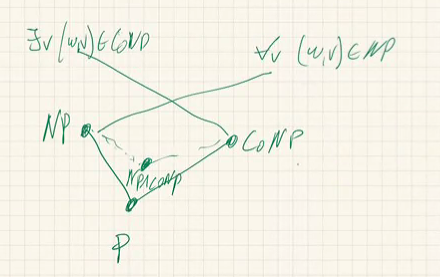 ∃v (w,v) ∈ CoNP
∀v (w,v) ∈ NP
NP
CoNP
NP∩CoNP
P